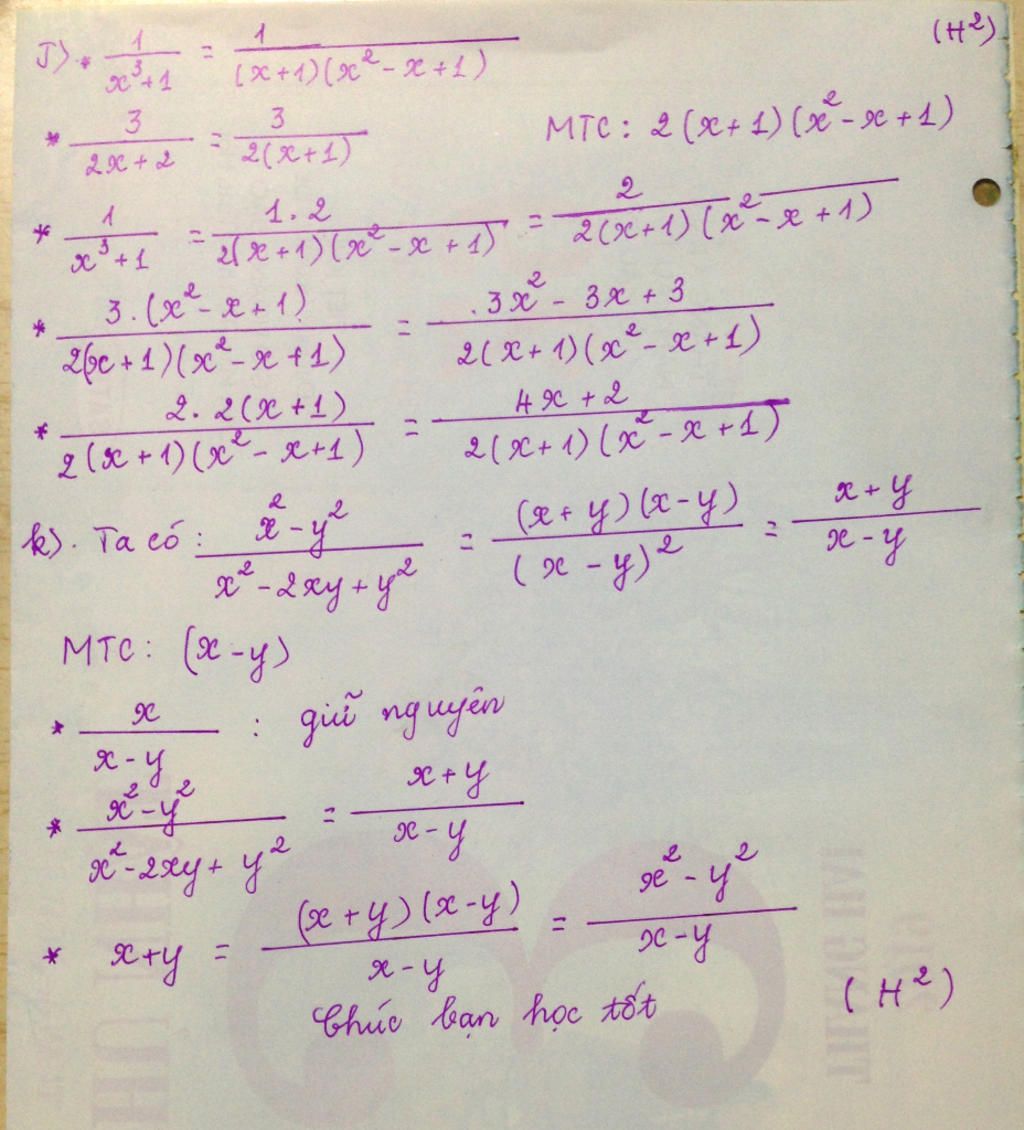 (H²)
J). * 1/(x³+1) = 1/((x+1)(x²-x+1))
* 3/(2x+2) = 3/(2(x+1)) MTC: 2(x+1)(x²-x+1)
* 1/(x³+1) = 1.2/(2(x+1)(x²-x+1)) = 2/(2(x+1)(x²-x+1))
* 3.(x²-x+1)/(2(x+1)(x²-x+1)) = 3x²-3x+3/(2(x+1)(x²-x+1))
* 2.2(x+1)/(2(x+1)(x²-x+1)) = 4x+2/(2(x+1)(x²-x+1))
k). Ta có: x²-y²/(x²-2xy+y²) = (x+y)(x-y)/(x-y)² = x+y/x-y
MTC: (x-y)
* x/x-y : giữ nguyên
* x²-y²/x²-2xy+y² = x+y/x-y
* x+y = (x+y)(x-y)/x-y = x²-y²/x-y
Chúc bạn học tốt (H²)